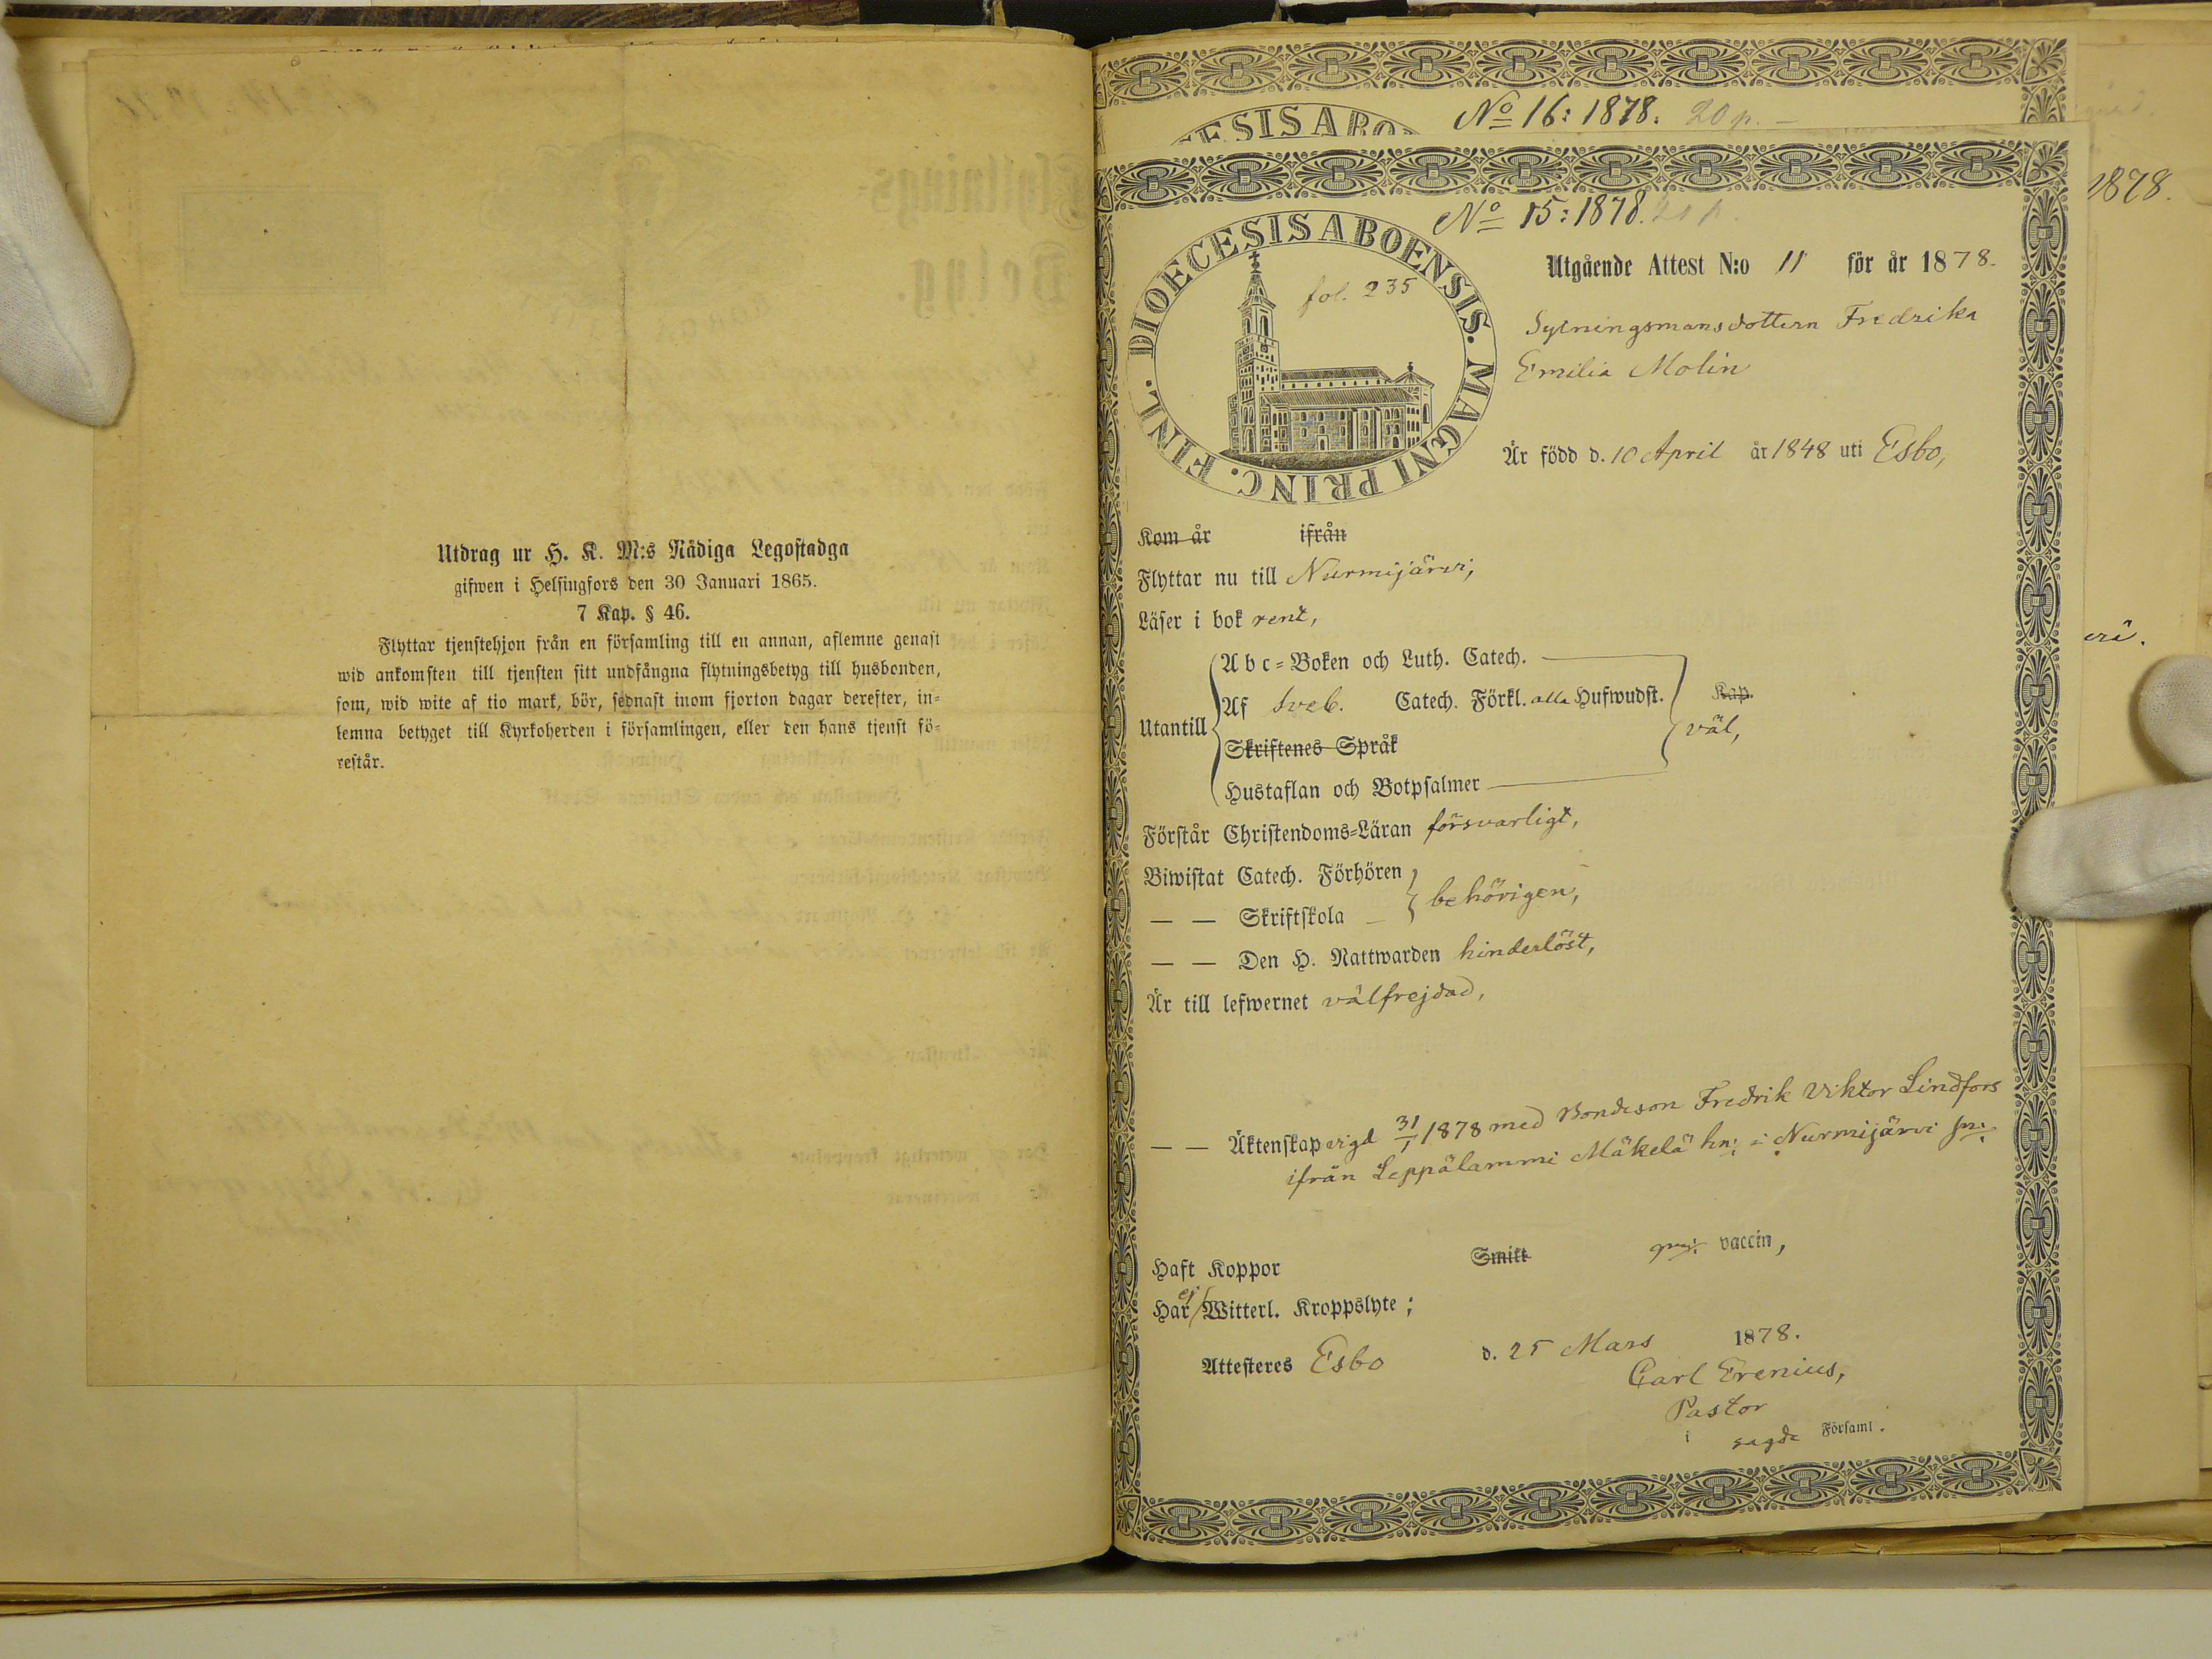 Utdrag ur H. K. M:s Nådiga Legostadga
gifwen i Helsingfors den 30 Januari 1865.
7 Kap. § 46.
Flyttar tjenstehjon från en församling till en annan, aflemne genast
wid ankomsten till tjensten sitt undfångna flytningsbetyg till husbonden,
som, wid wite af tio mark, bör, sednast inom fjorton dagar derefter, in-
lemna betyget till Kyrkoherden i församlingen, eller den hans tjenst fö-
restår.
No 16: 1878. 20 p. —
No 15: 1878.
DIOECESIS ABOENSIS. MAGNI PRINC. FINL.
fol. 235
Utgående Attest N:o 11 för år 1878.
Sytningsmansdottern Fredrika
Emilia Molin
Är född d. 10 April år 1848 uti Esbo,
Kom år ifrån
Flyttar nu till Nurmijärvi,
Läser i bok rent,
Utantill
A b c-Boken och Luth. Catech.
Af Sveb. Catech. Förkl. alla Hufwudst.
Skriftenes Språk
Hustaflan och Botpsalmer
Kap.
väl,
Förstår Christendoms-Läran försvarligt,
Biwistat Catech. Förhören
— — Skriftskola
behörigen,
— — Den H. Nattwarden hinderlöst,
Är till lefwernet välfrejdad,
— — Äktenskap vigd 31/1 1878 med Bondeson Fredrik Viktor Lindfors
ifrån Leppälammi Mäkelä hn: i Nurmijärvi sn:
Haft Koppor Smitt vaccin,
Har ej Witterl. Kroppslyte;
Attesteres Esbo d. 25 Mars 1878.
Carl Erenius,
Pastor
i sagde Församl.
1878.